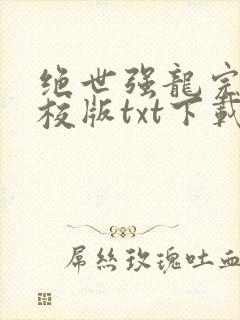 绝世强龍完
校版txt下載
屌丝玫瑰吐血